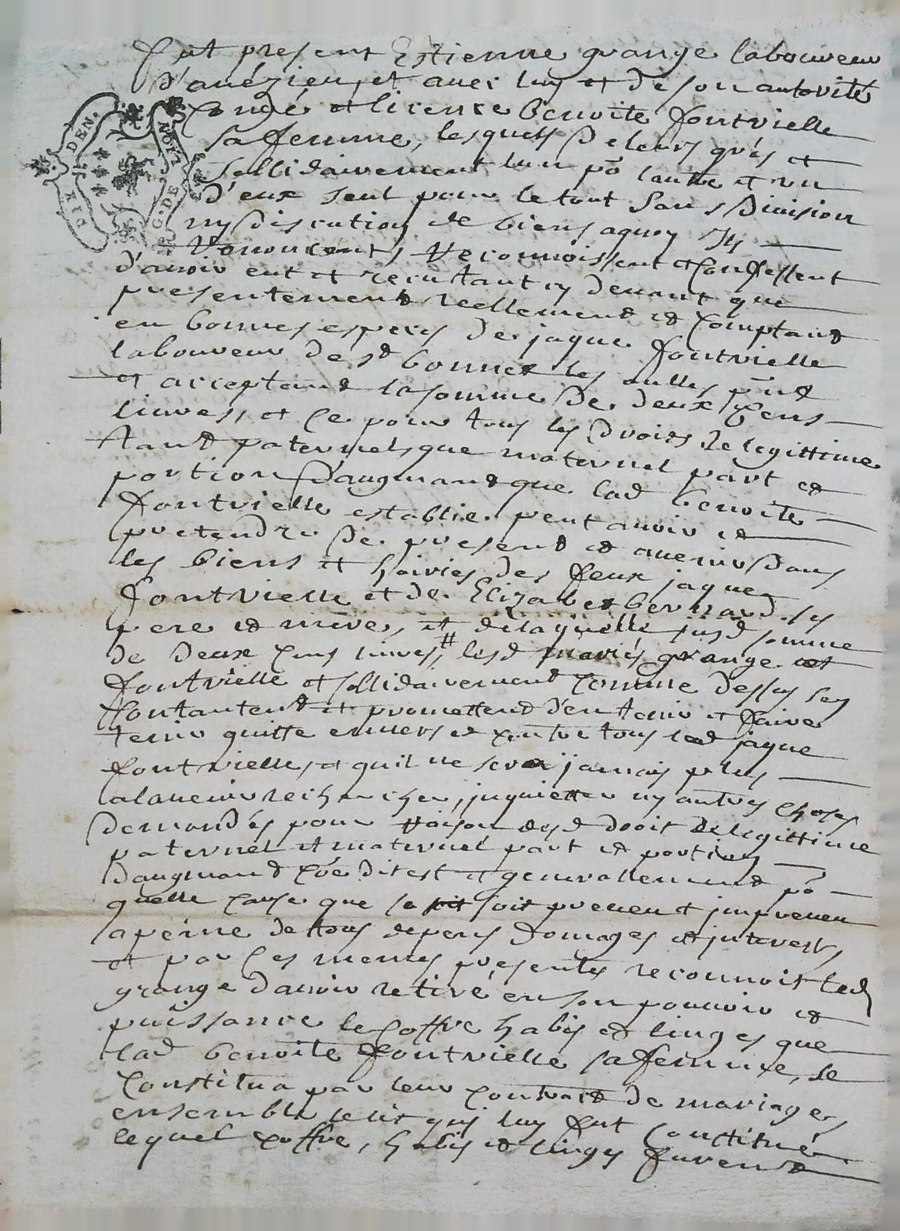 fut present Estienne grange laboureur
d'auézieu, et avec luy et de son autorité
congé et licence benoite fontvielle
sa femme, lesquels de leurs grés et
sollidairement lun po lautre et un
d'eux seul pour le tout sans division
ny discution de biens aquoy Ils
renoncent, reconnoissent et confessent
d'avoir eut et receu tant cy devant que
presentement reellement et comptant
en bonnes especes de jaque fontvielle
laboureur de st bonnet les oulles pnt
et acceptant la somme de deux cens
livres, et ce pour tous les droits de legittime
tant paternel que maternel part et
portion daugmant que lad benoite
fontvielle establie peut avoir et
pretendre de present et avenir dans
les biens et hoiries des feux jaque
fontvielle et de Elizabet bernard ses
pere et mere, et de laquelle susd somme
de deux cens livres, # lesd mariés grange et
fontvielle et sollidairement comme dessus sen
contantent et promettent d'en tenir et faire
tenir quitte envers et contre tous led jaque
fontvielle, et quil ne sera jamais plus
alavenir recherché, inquietter ny autres choses
demandés pour raison desd droit de legittime
paternel et maternel part et portion
daugmant coe dit est et generallement po
quelle cause que ce soit preveu et impreveu
a peine de tous depens domages et interests,
et par ces memes presentes reconnoit led
grange d'avoir retiré en son pouvoir et
puissance le coffre habis et linges que
lad benoite fontvielle sa femme, se
constitua par leur contrat de mariage,
ensemble le lit qui luy fut constitué
lequel coffre, habis et linges furent
G. DE